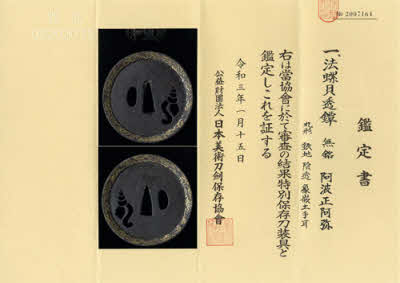 № 2007164
鑑定書
一、法螺貝透鐔 無銘 阿波正阿弥
丸形 鉄地 陰透 象嵌土手耳
右は當協會に於て審査の結果特別保存刀装具と
鑑定しこれを証する
令和三年一月十五日
公益財團法人日本美術刀剣保存協會